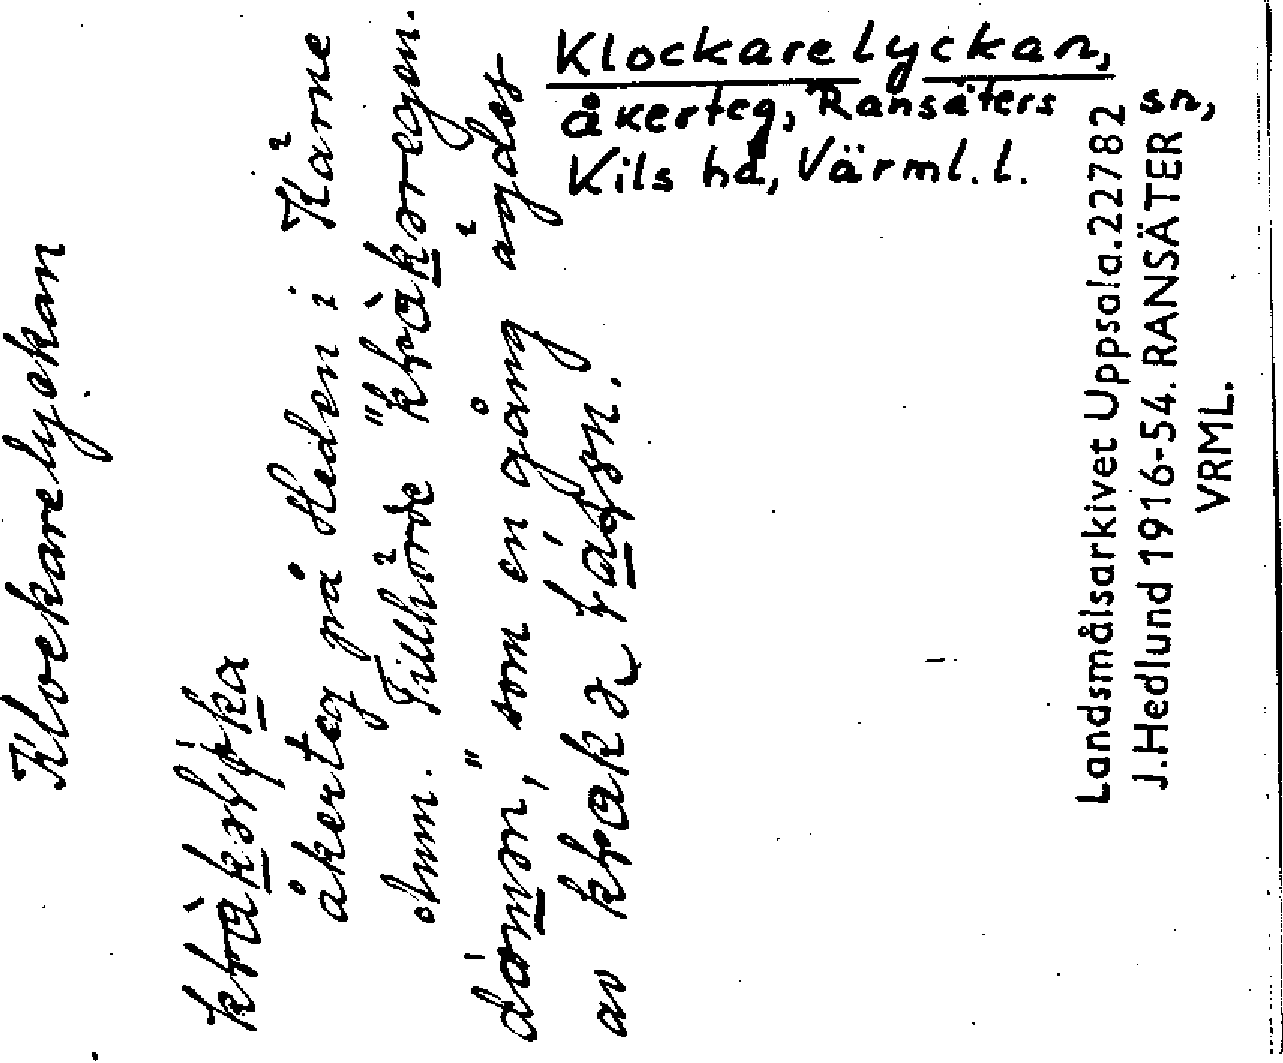 Klockarelyckan,
åkerteg, Ransäters sn,
Kils hd, Värml. l.
Klockarelyckan
åkerteg på Heden i Kårne
ohm. Tillhörde
som en gång ägdes
av
Landsmålsarkivet Uppsala. 22782
J. Hedlund 1916-54. RANSÄTER
VRML.